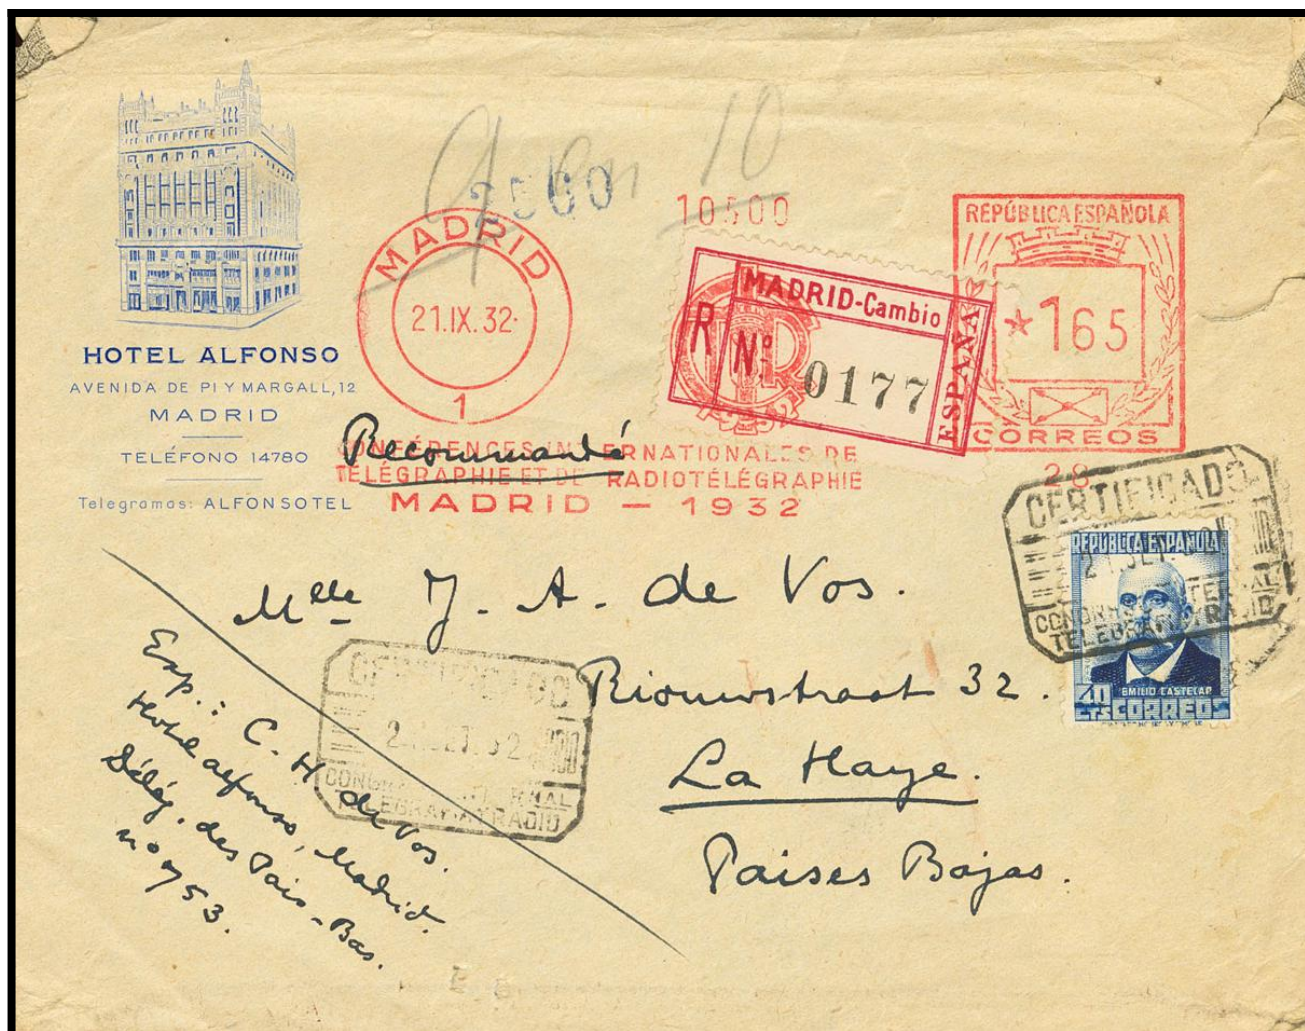 10
2500
10500
HOTEL ALFONSO
AVENIDA DE PI Y MARGALL, 12
MADRID
TELÉFONO 14780
Telegramas: ALFONSOTEL
MADRID
21.IX.32
1
R
MADRID-Cambio
Nº 0177
ESPAÑA
REPÚBLICA ESPAÑOLA
*165
CORREOS
28
Recommandé
CONFÉRENCES INTERNATIONALES DE
TÉLÉGRAPHIE ET DE RADIOTÉLÉGRAPHIE
MADRID - 1932
CERTIFICADO
21 SET.
TELEGRAFIA Y RADIO
REPÚBLICA ESPAÑOLA
EMILIO CASTELAR
40
CTS CORREOS
Mlle J. A. de Vos.
Riouwstraat 32.
La Haye.
Paises Bajas.
CERTIFICADO
TELEGRAFIA Y RADIO
Exp.: C. H. de Vos.
Hotel Alfonso, Madrid.
Délég. des Pais-Bas.
no 753.